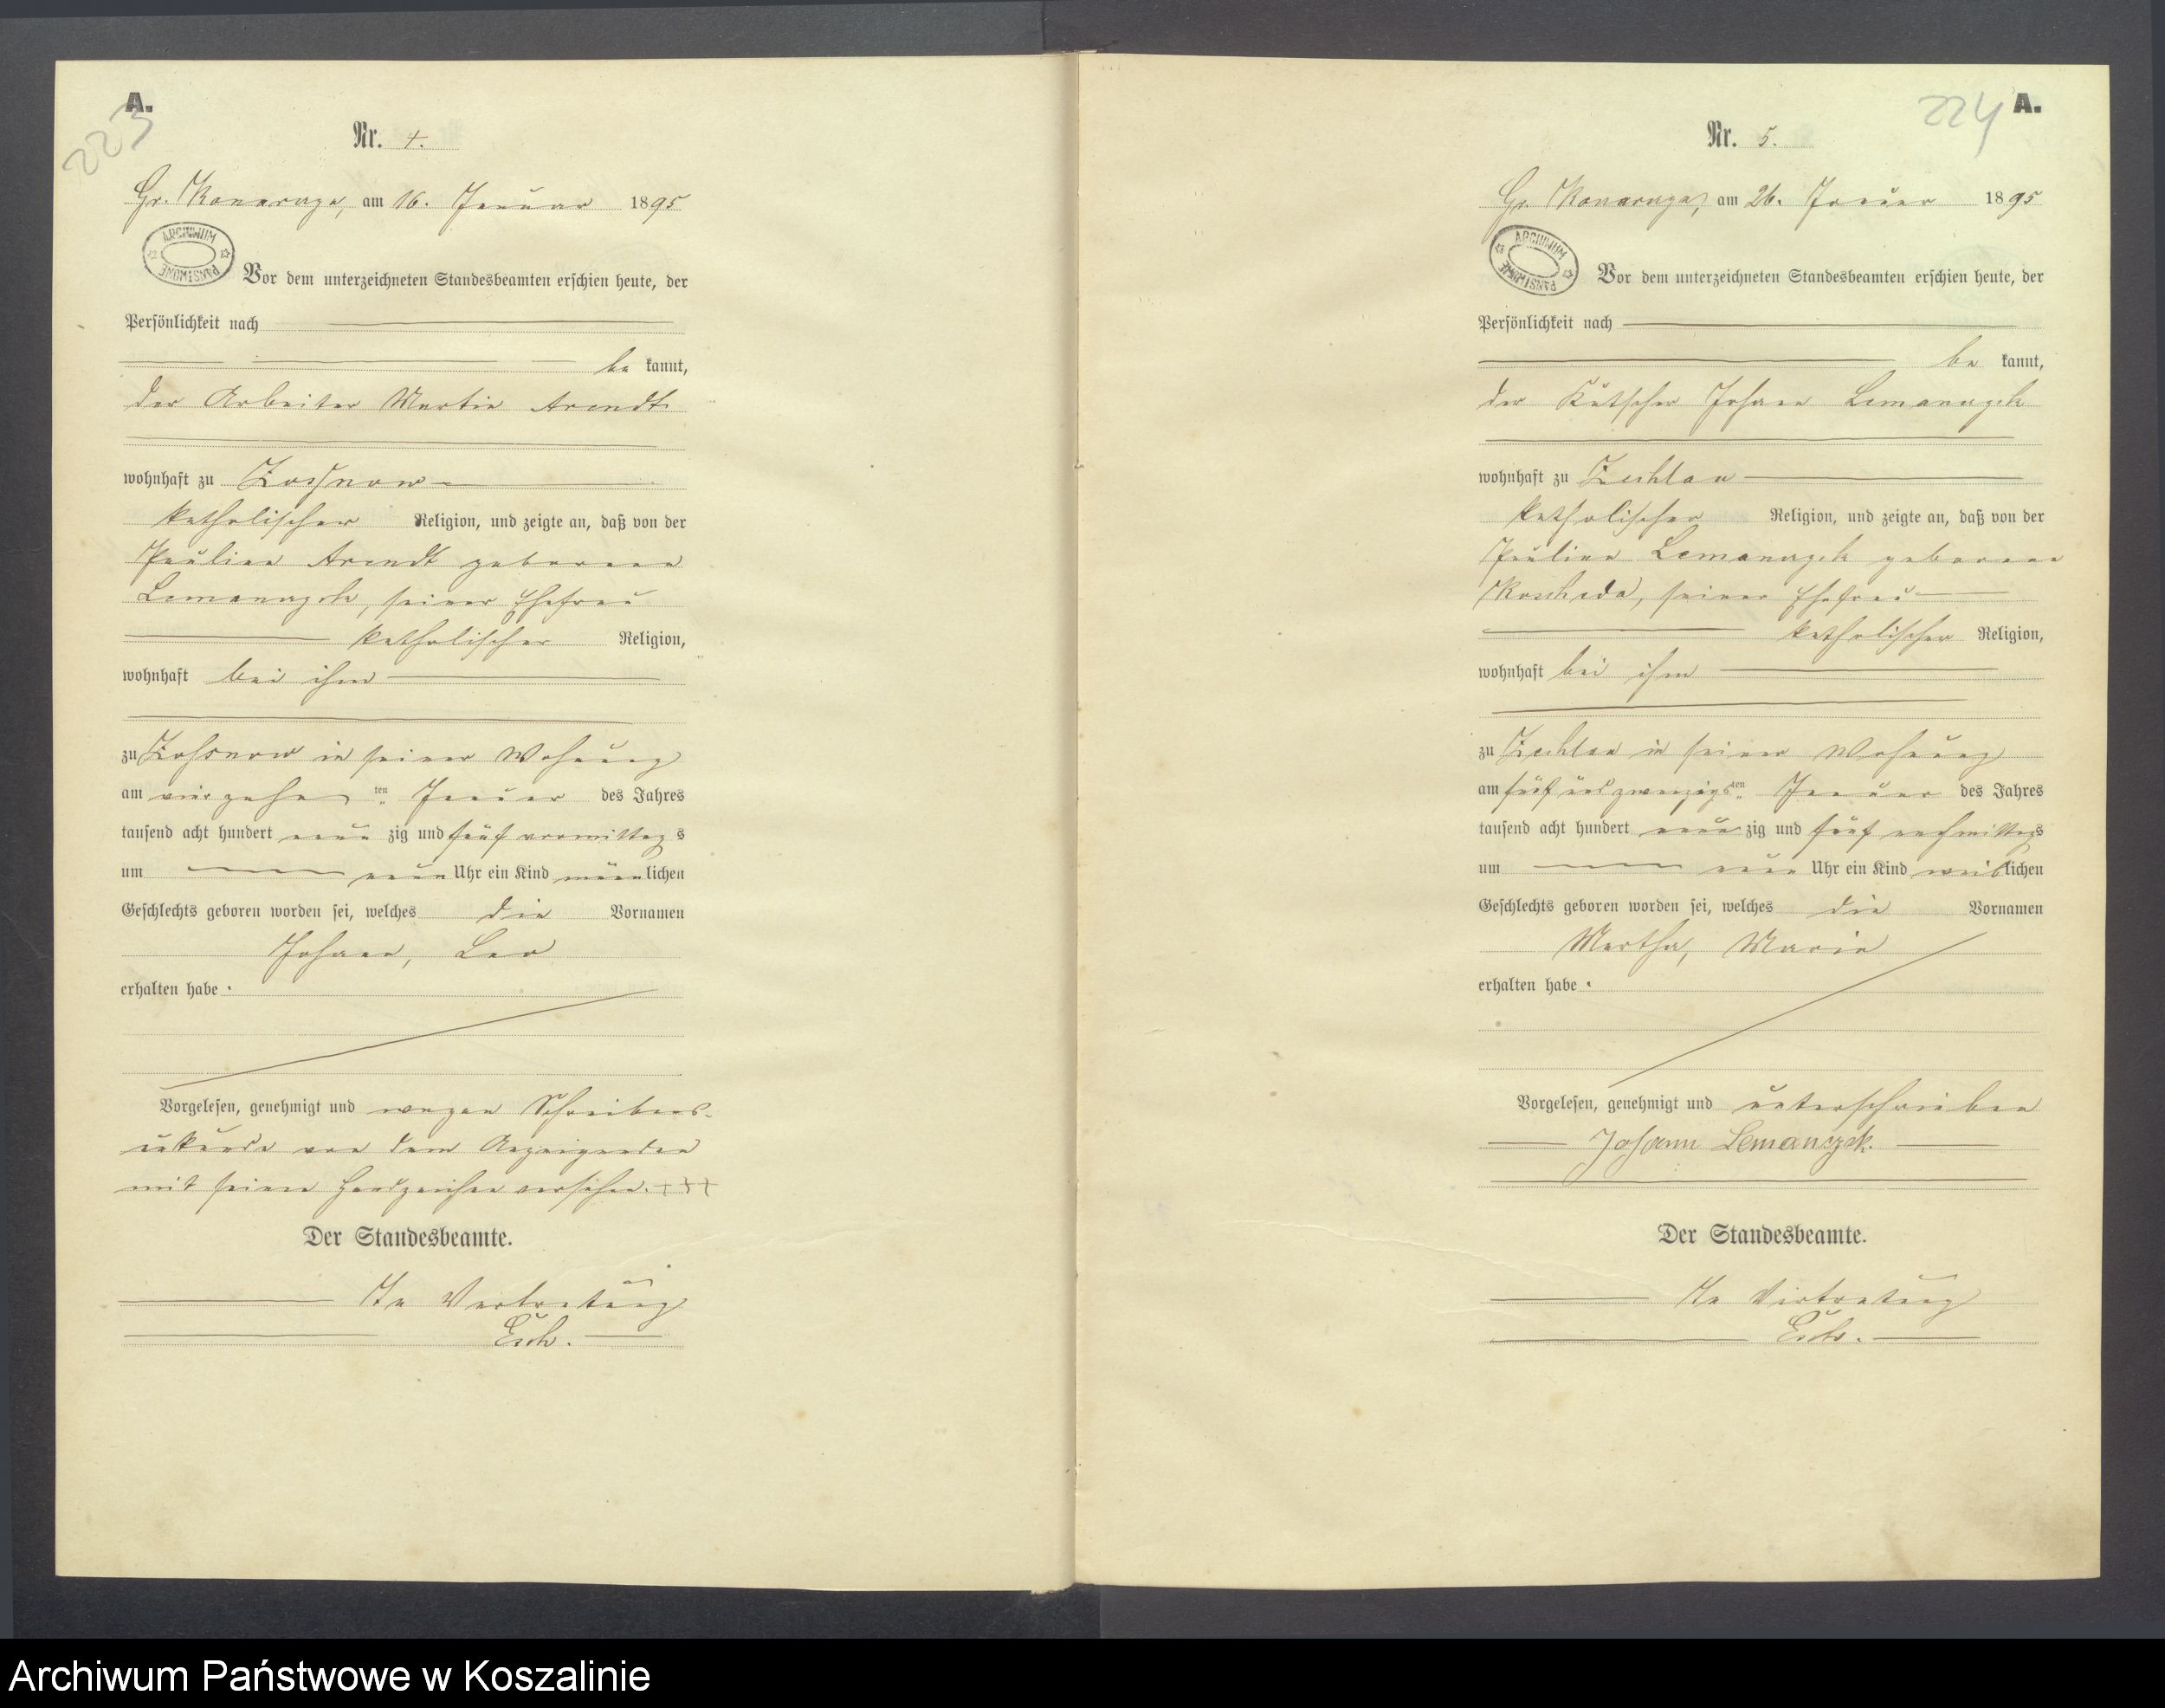 A.
223
Nr. 4.
Gr. Konarzyn, am 16. Januar 1895
ARCHIWUM PAŃSTWOWE
Vor dem unterzeichneten Standesbeamten erschien heute, der
Persönlichkeit nach
be kannt,
der Arbeiter Martin Arendt
wohnhaft zu Zossnow
katholischer Religion, und zeigte an, daß von der
Pauline Arendt geborene
Lemanczyk, seiner Ehefrau
katholischer Religion,
wohnhaft bei ihm
zu Zossnow in seiner Wohnung
am vierzehn ten Januar des Jahres
tausend acht hundert neun zig und fünf vormittag s
um neun Uhr ein Kind männlichen
Geschlechts geboren worden sei, welches die Vornamen
Johann, Leo
erhalten habe.
Vorgelesen, genehmigt und wegen Schreibens-
unkunde von dem Anzeigenden
mit seinem Handzeichen versehen. +++
Der Standesbeamte.
In Vertretung
224
A.
Nr. 5.
Gr. Konarzyn, am 26. Januar 1895
ARCHIWUM PAŃSTWOWE
Vor dem unterzeichneten Standesbeamten erschien heute, der
Persönlichkeit nach
be kannt,
der Kutscher Johann Lemanczyk
wohnhaft zu Zechlau
katholischer Religion, und zeigte an, daß von der
Pauline Lemanczyk geborene
seiner Ehefrau
katholischer Religion,
wohnhaft bei ihm
zu Zechlau in seiner Wohnung
am fünfundzwanzigsten Januar des Jahres
tausend acht hundert neun zig und fünf nachmittags
um neun Uhr ein Kind weiblichen
Geschlechts geboren worden sei, welches die Vornamen
Martha, Maria
erhalten habe.
Vorgelesen, genehmigt und unterschrieben
Johann Lemanczyk.
Der Standesbeamte.
In Vertretung
Archiwum Państwowe w Koszalinie